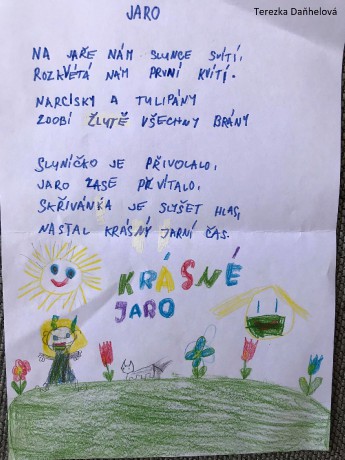 Terezka Daňhelová
JARO
NA JAŘE NÁM SLUNCE SVÍTÍ,
ROZKVÉTÁ NÁM PRVNÍ KVÍTÍ.
NARCISKY A TULIPÁNY
ZDOBÍ ŽLUTĚ VŠECHNY BRÁNY
SLUNÍČKO JE PŘIVOLALO,
JARO ZASE PŘIVÍTALO,
SKŘIVÁNKA JE SLYŠET HLAS,
NASTAL KRÁSNÝ JARNÍ ČAS.
KRÁSNÉ
JARO